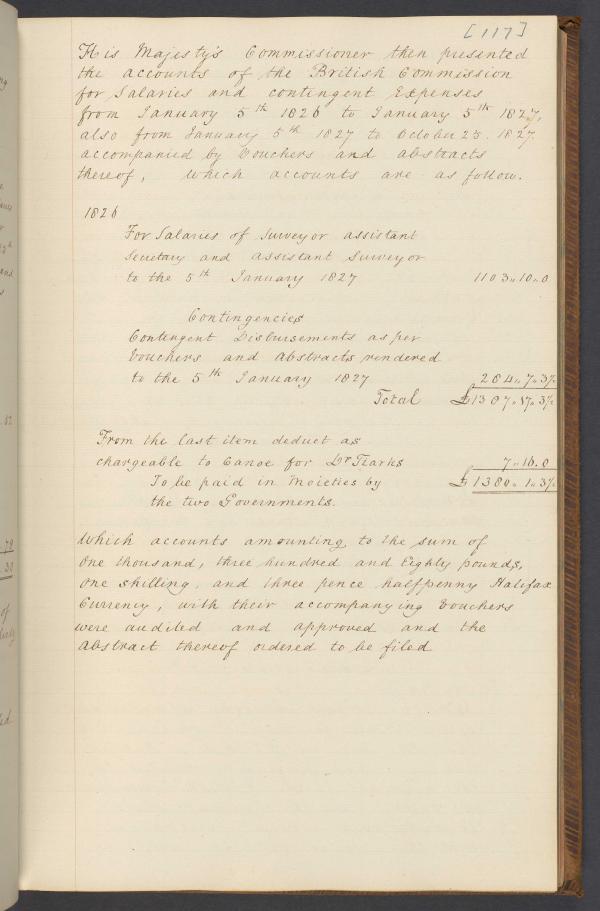 [117]
His Majesty's Commissioner then presented
the accounts of the British Commission
for Salaries and contingent Expenses
from January 5th 1826 to January 5th 1827,
also from January 5th 1827 to October 25. 1827.
accompanied by Vouchers and abstracts
thereof, which accounts are as follow.
1826
For Salaries of Surveyor assistant
Secretary and assistant Surveyor
to the 5th January 1827 1103 " 10 " 0
Contingencies
Contingent Disbursements as per
Vouchers and abstracts rendered
to the 5th January 1827 284 " 7 " 3½
Total £1387 " 17 " 3½
From the last item deduct as
chargeable to Canoe for Dr 7 " 16. 0
To be paid in Moieties by £1380 " 1 " 3½
the two Governments.
Which accounts amounting to the sum of
One thousand, three hundred and Eighty pounds,
One shilling, and three pence halfpenny Halifax
Currency, with their accompanying Vouchers
were audited and approved and the
Abstract thereof ordered to be filed